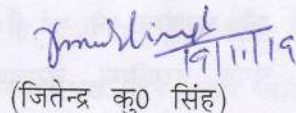 19/11/19
(जितेन्द्र कु0 सिंह)